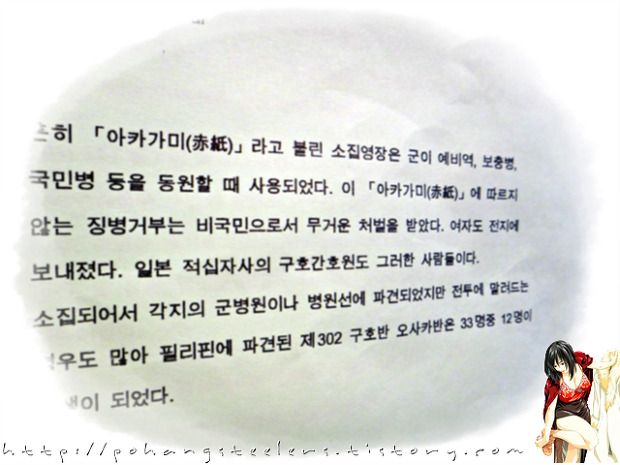 흔히 「아카가미(赤紙)」라고 불린 소집영장은 군이 예비역, 보충병,
국민병 등을 동원할 때 사용되었다. 이 「아카가미(赤紙)」에 따르지
않는 징병거부는 비국민으로서 무거운 처벌을 받았다. 여자도 전지에
보내졌다. 일본 적십자사의 구호간호원도 그러한 사람들이다.
소집되어서 각지의 군병원이나 병원선에 파견되었지만 전투에 말려드는
경우도 많아 필리핀에 파견된 제302 구호반 오사카반은 33명중 12명이
되었다.
http://pohangsteelers.tistory.com